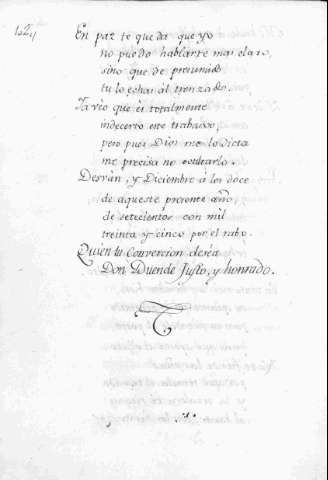 En paz te queda que yo
no puedo hablarte mas claro,
sino que de presumido
tu lo echas al trenzado.
Ya veo que es totalmente
indecerto este trabaxo,
pero pues Dios me lo dicta
me precisa no ocultarlo.
Desván, y Diciembre á los doce
de aqueste presente año,
de setecientos con mil
treinta y cinco por el rabo.
Quien tu Convercion deséa
Don Duende Justo, y honrado.